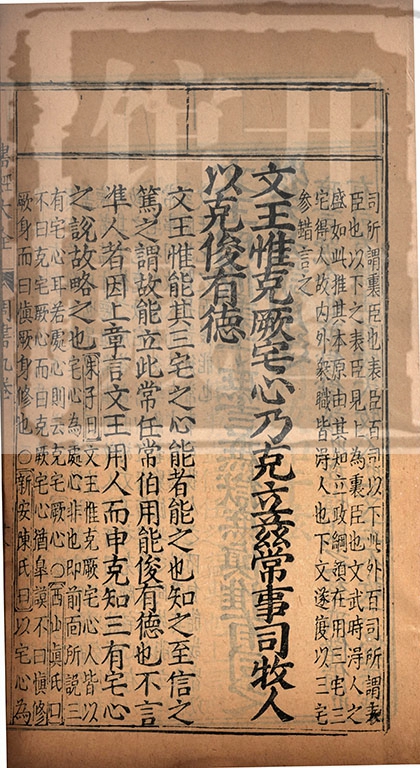 司所謂裏臣也表臣百司以下此外百司所謂表
臣也以下之表臣見上為裏臣也文武時得人之
盛如此推其本原由其知立政綱領在用三宅三
宅得人故内外衆職皆得人也下文遂復以三宅
参錯言之
文王惟克厥宅心乃克立兹常事司牧人
以克俊有德
文王惟能其三宅之心能者能之也知之至信之
篤之謂故能立此常任常伯用能俊有德也不言
準人者因上章言文王用人而申克知三有宅心
之說故略之也朱子曰文王惟克厥宅心人皆以
宅心為處心非也即前面所說三
有宅心耳若處心則云克宅厥心○西山真氏曰
不曰克宅厥心而曰克厥宅心猶臯謨不曰慎修
厥身而曰慎厥身修也○新安陳氏曰以宅心為
書經大全 周書九卷